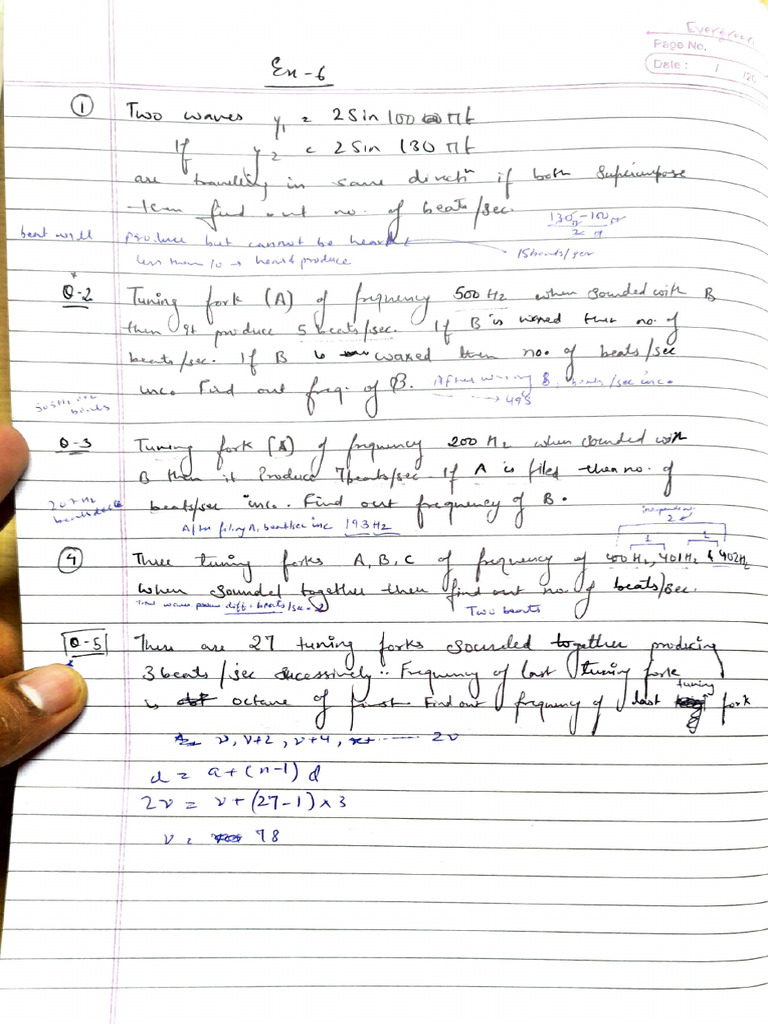 Evergreen
Page No.
Date : / /20
Ex-6
① Two waves y1 = 2 Sin 100 πt
If y2 = 2 Sin 130 πt
are traveling in same directn if both Superimpose
then find out no. of beats/sec.
130π-100π
2π
beat will produce but cannot be heard
15 beats/sec
less than 10 → heard produce
Q-2 Tuning fork (A) of frequency 500 Hz when sounded with B
then it produce 5 beats/sec. If B is waxed then no. of
beats/sec. If B is waxed then no. of beats/sec
inc. Find out freq. of B. After waxing B, beats/sec inc.
→ 495
505Hz
beats
Q-3 Tuning fork (A) of frequency 200 Hz when sounded with
B then it produce 7beats/sec. If A is filed then no. of
beats/sec inc. Find out frequency of B.
207Hz
After filing A, beats/sec inc 193 Hz
independent
2
1 1
④ Three tuning forks A, B, C of frequency of 400 Hz, 401 Hz & 402Hz
When sounded together then find out no. of beats/sec.
diff. beats/sec. 2
Two beats
Q-5 There are 27 tuning forks sounded together producing
3 beats / sec sucessively :. Frequency of last tuning fork
is octane of first. Find out frequency of last tuning fork
ν, ν+2, ν+4, ...... 2ν
l = a + (n-1) d
2ν = ν + (27-1) x 3
ν = 78